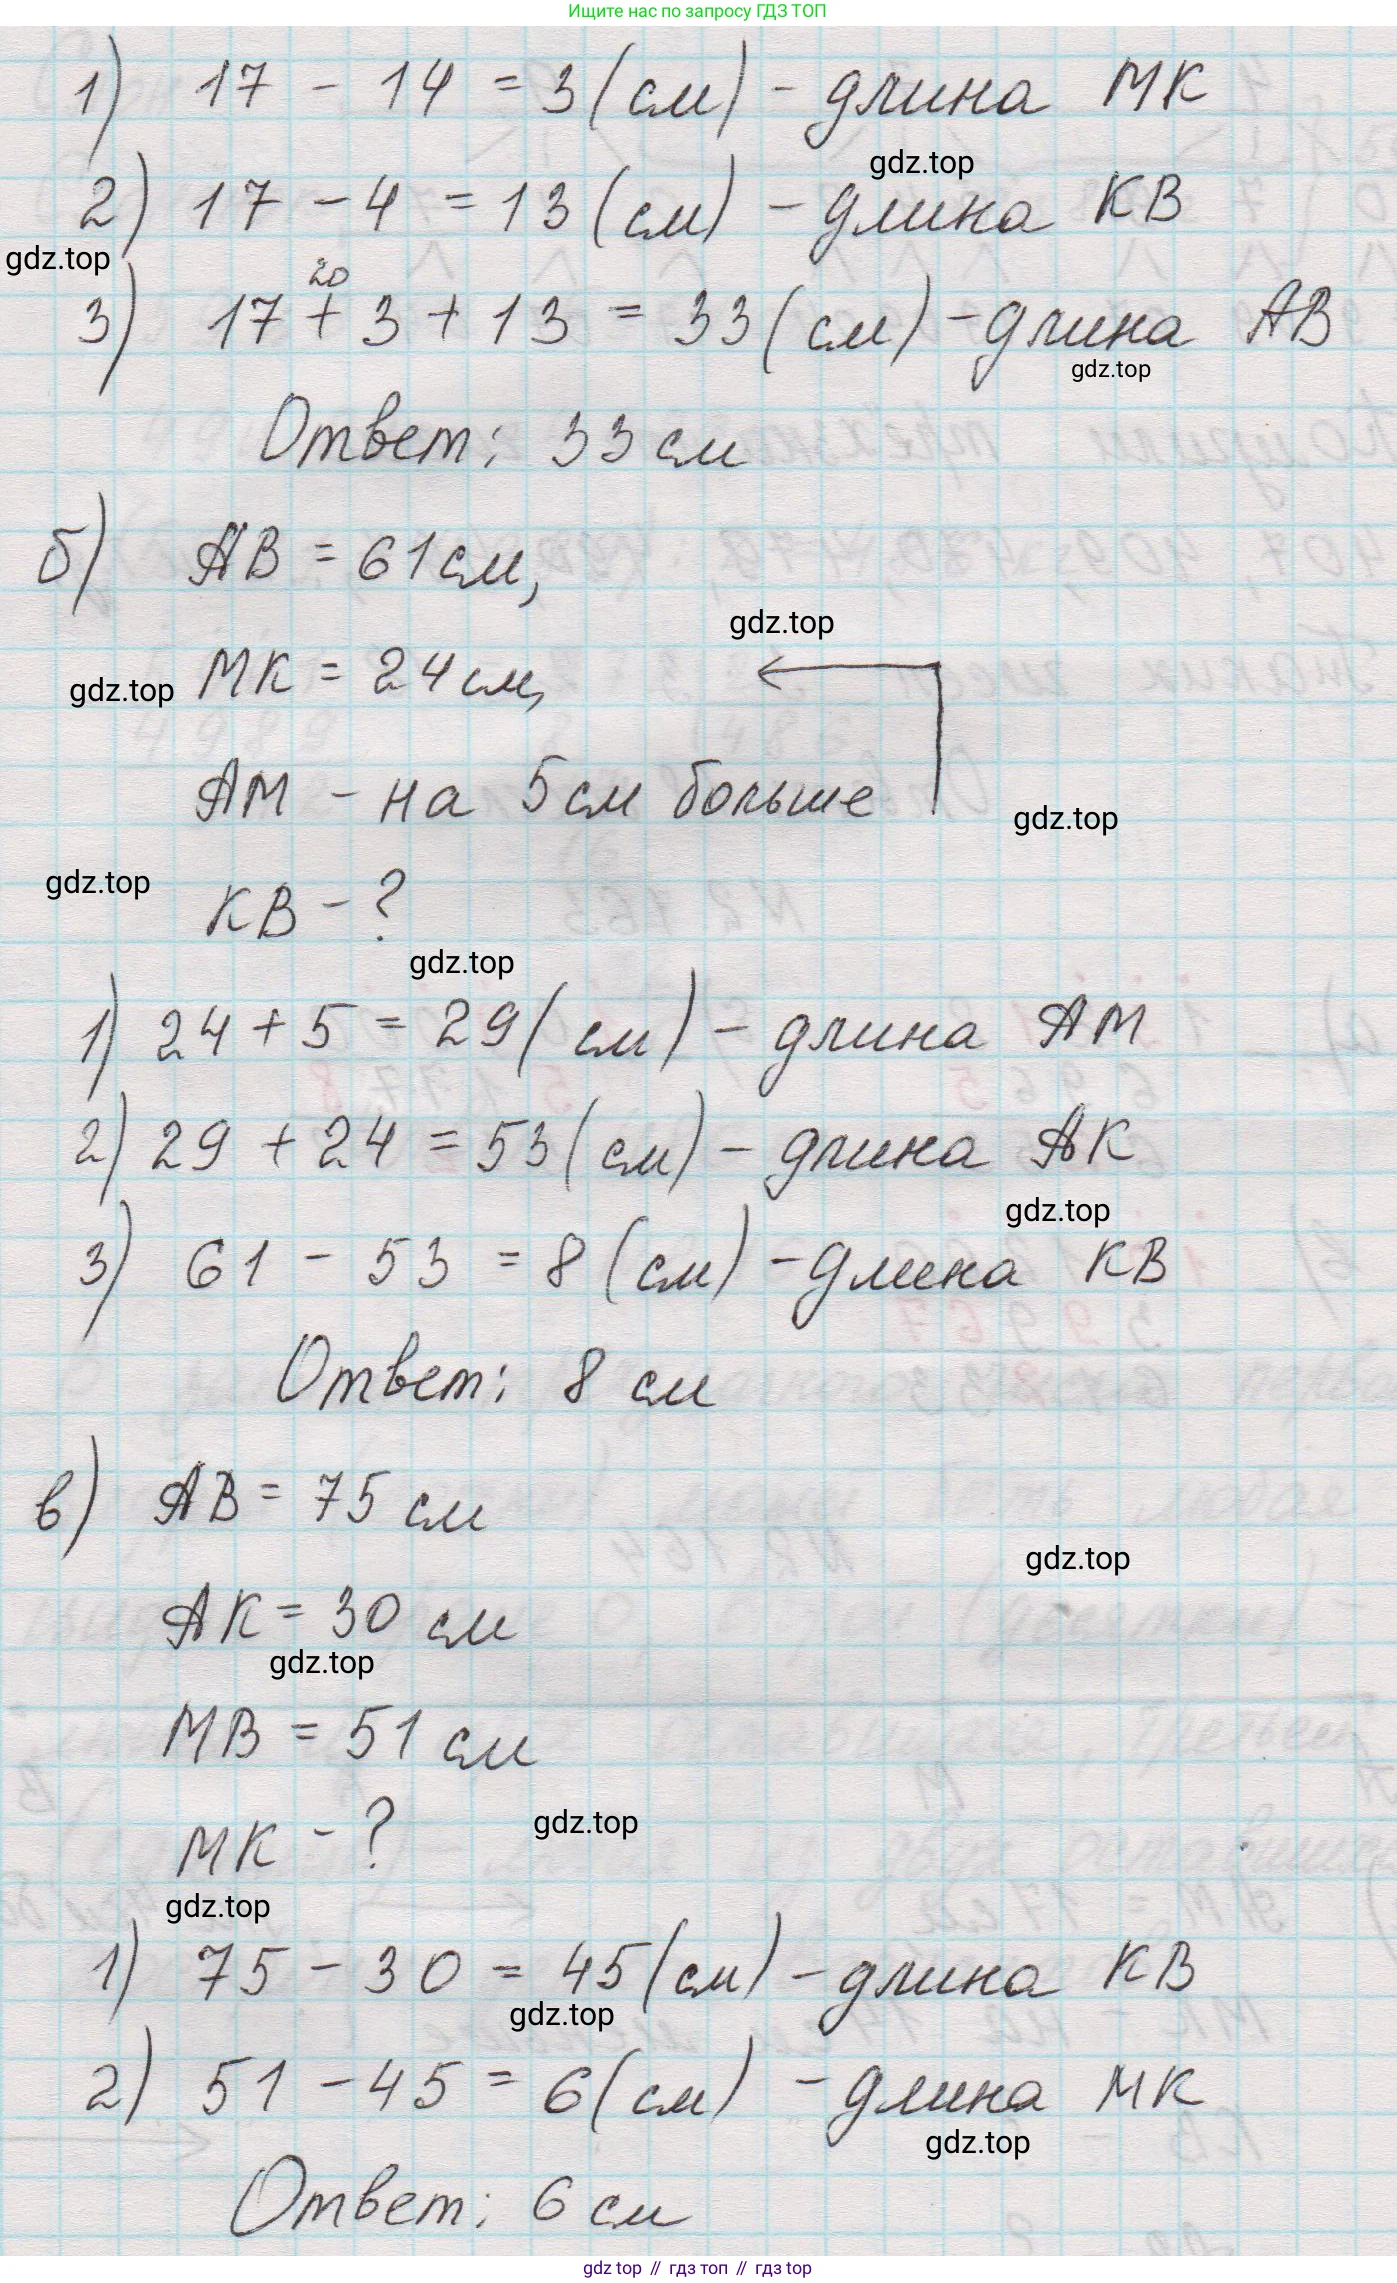 Ищите нас по запросу ГДЗ ТОП
1) 17 - 14 = 3 (см) - длина МК
gdz.top
2) 17 - 4 = 13 (см) - длина КВ
gdz.top
20
3) 17 + 3 + 13 = 33 (см) - длина АВ
gdz.top
Ответ: 33 см
б) АВ = 61 см,
gdz.top
МК = 24 см,
gdz.top
АМ - на 5 см больше
gdz.top
gdz.top
КВ - ?
gdz.top
1) 24 + 5 = 29 (см) - длина АМ
2) 29 + 24 = 53 (см) - длина АК
gdz.top
3) 61 - 53 = 8 (см) - длина КВ
Ответ: 8 см
в) АВ = 75 см
gdz.top
АК = 30 см
gdz.top
МВ = 51 см
gdz.top
МК - ?
gdz.top
1) 75 - 30 = 45 (см) - длина КВ
gdz.top
2) 51 - 45 = 6 (см) - длина МК
gdz.top
Ответ: 6 см
gdz top // гдз топ // gdz top